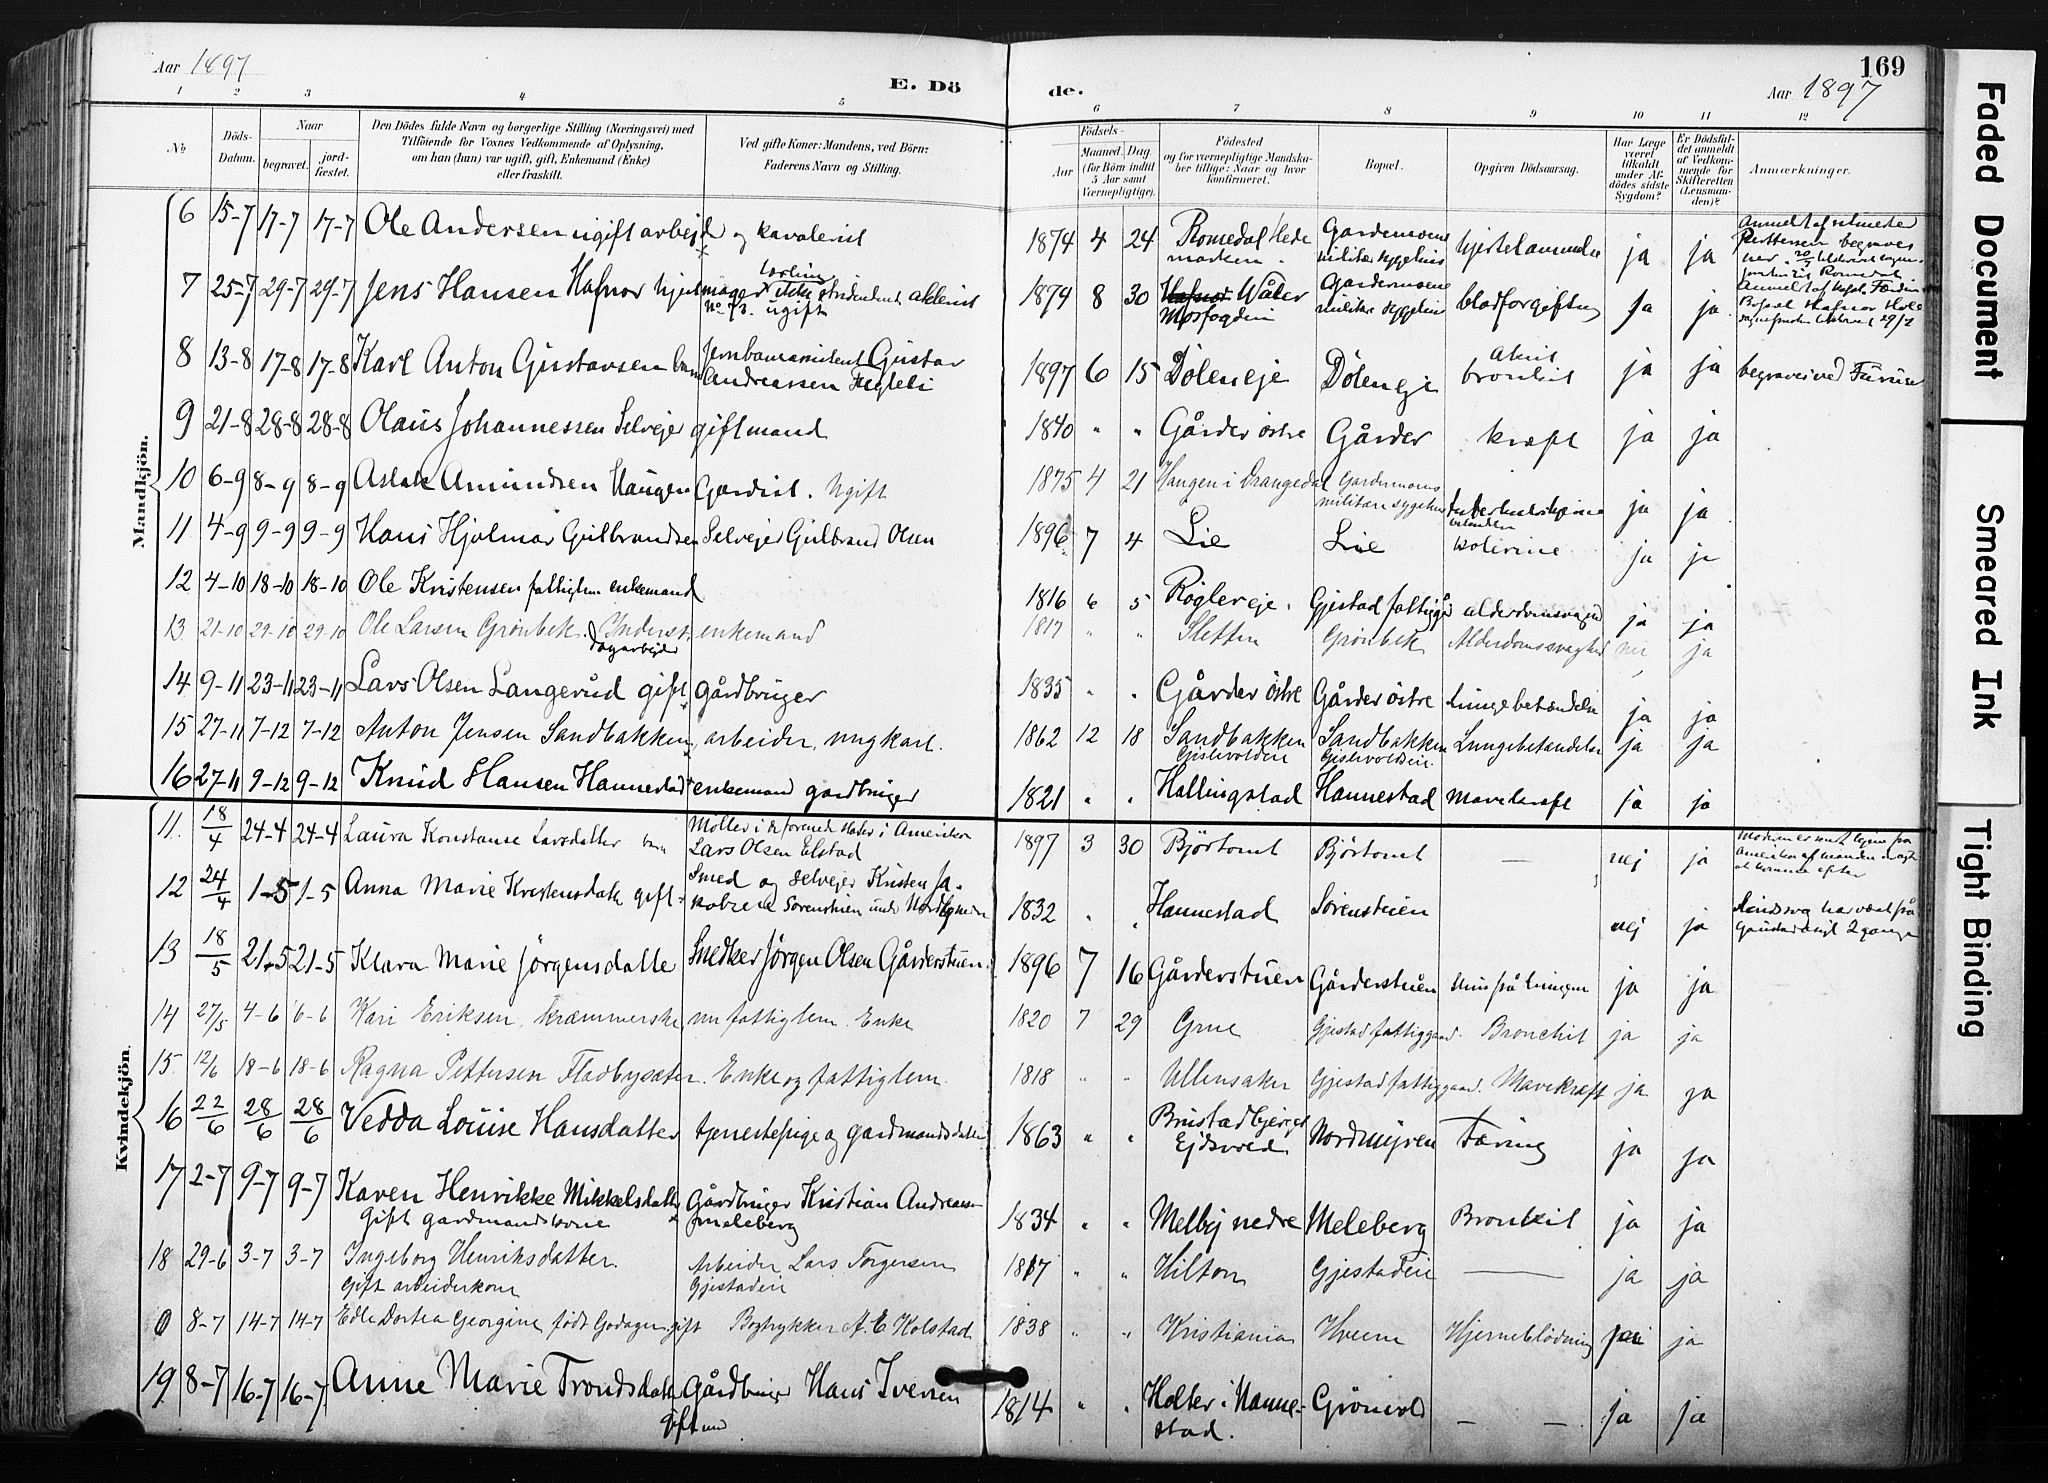 Aar 1897
E. Dö
de.
Aar 1897
169
1 2 3 4 5 6 7 8 9 10 11 12
No
Döds-Datum.
Naar
begravet.
jord-fæstet.
Den Dödes fulde Navn og borgerlige Stilling (Næringsvei) med
Tilföiende for Voxnes Vedkommende af Oplysning,
om han (hun) var ugift, gift, Enkemand (Enke)
eller fraskilt.
Ved gifte Koner: Mandens, ved Börn:
Faderens Navn og Stilling.
Födsels-
Aar
Maaned. Dag
(for Börn indtil
5 Aar samt
Værnepligtige).
Födested
og for værnepligtige Mandska-
ber tillige: Naar og hvor
konfirmeret.
Bopæl.
Opgiven Dödsaarsag.
Har Læge
været
tilkaldt
under Af-
dödes sidste
Sygdom?
Er Dödsfal-
det anmeldt
af Vedkom-
mende for
Skifteretten
(Lensman-
den)?
Anmærkninger.
Mandkjön.
6 15-7 17-7 17-7 Ole Andersen ugift arbejd og kavalerist 1874 4 24 Romedal Hedemarken. Gardemoens militær sygehus ja ja
7 25-7 29-7 29-7 Jens Hansen Hafnor hjulmager No 73. ugift 1874 8 30 Våler Gardermoens militær sygehus blodforgiftng ja ja
8 13-8 17-8 17-8 Karl Anton Gustavsen barn Gustav Andreassen 1897 6 15 Döleneje Döleneje Akut bronkit ja ja begraves ved Furuset
9 21-8 28-8 28-8 Olaus Johannessen Selvejer gift mand 1840 " " Gårder östre Gårder kræft ja ja
10 6-9 8-9 8-9 Aslak Amundsen Haugen Gardist. Ugift 1875 4 21 Haugen i Drangedal Gardermoens militære sygehus ja ja
11 4-9 9-9 9-9 Hans Hjalmar Gulbrandsen Selvejer Gulbrand Olsen 1896 7 4 Lie Lie kolerine ja ja
12 4-10 18-10 18-10 Ole Kristensen fattiglem enkemand 1816 6 5 Röglereje. Gjestad fattiggå alderdomssvaghed ja ja
13 21-10 29-10 29-10 Ole Larsen Grönbek. Inderst, Dagarbejder enkemand 1817 " " Sletten Grönbek Alderdomssvaghed nei ja
14 9-11 23-11 23-11 Lars Olsen Langerud gift gårdbruger 1835 " " Gårder östre Gårder östre lungebetændelse ja ja
15 27-11 7-12 7-12 Anton Jensen Sandbakken, arbeider, ungkarl. 1862 12 18 Sandbakken Gislevolden Sandbakken Gislevolden Lungebetændelse ja ja
16 27-11 9-12 9-12 Knud Hansen Hannestad enkemand gardbruger 1821 " " Hallingstad Hannestad Mavekræft ja ja
Kvindekjön.
11. 18/4 24-4 24-4 Laura Konstanse Larsdatter barn Möller i de forenede stater i Amerika Lars Olsen Elstad 1897 3 30 Björtomt Björtomt — nej ja
12 24/4 1-5 1-5 Anna Marie Kristensdatt gift Smed og selvejer Kristen Jakobsen Sörenstuen 1832 " " Hannestad Sörenstuen nej ja
13 18/5 21-5 21-5 Klara Marie Jörgensdatte Snedker Jörgen Olsen Gårderstuen. 1896 7 16 Gårderstuen Gårderstuen ja ja
14 27/5 4-6 6-6 Kari Eriksen, kræmmerske, nu fattiglem. Enke 1820 7 29 Grue Gjestad fattiggaard. Bronchit ja ja
15. 12/6 18-6 18-6 Ragna Pettersen Fladbysæter. Enke og fattiglem. 1818 " " Ullensaker Gjestad fattiggaard. Mavekræft ja ja
16 22/6 28/6 28/6 Vedda Louise Hansdatter tjenestepige og gardmandsdatter 1863 " " Brustadbjerget Ejdsvold Nordmyren Tæring ja ja
17 2-7 9-7 9-7 Karen Henrikke Mikkelsdatt gift gardmandskone Gårdbruger Kristian Andreassen Meleberg 1834 " " Melby nedre Meleberg Bronkit ja ja
18 29-6 3-7 3-7 Ingeborg Henriksdatter. Gift arbeiderkone Arbeider Lars Torgersen Gjestadeie 1817 " " Hilton Gjestadeie — ja ja
0 8-7 14-7 14-7 Edle Dortea Georgine födt Godager gift Bogtrykker A. E. Kolstad 1838 " " Kristiania Hveem Hjerneblödning ja ja
19. 8-7 16-7 16-7 Anne Marie Trondsdatt gift m Gårdbruger Hans Iversen 1814 " " Holter i Nannestad. Grönvold — — ja ja
Faded Document
Smeared Ink
Tight Binding